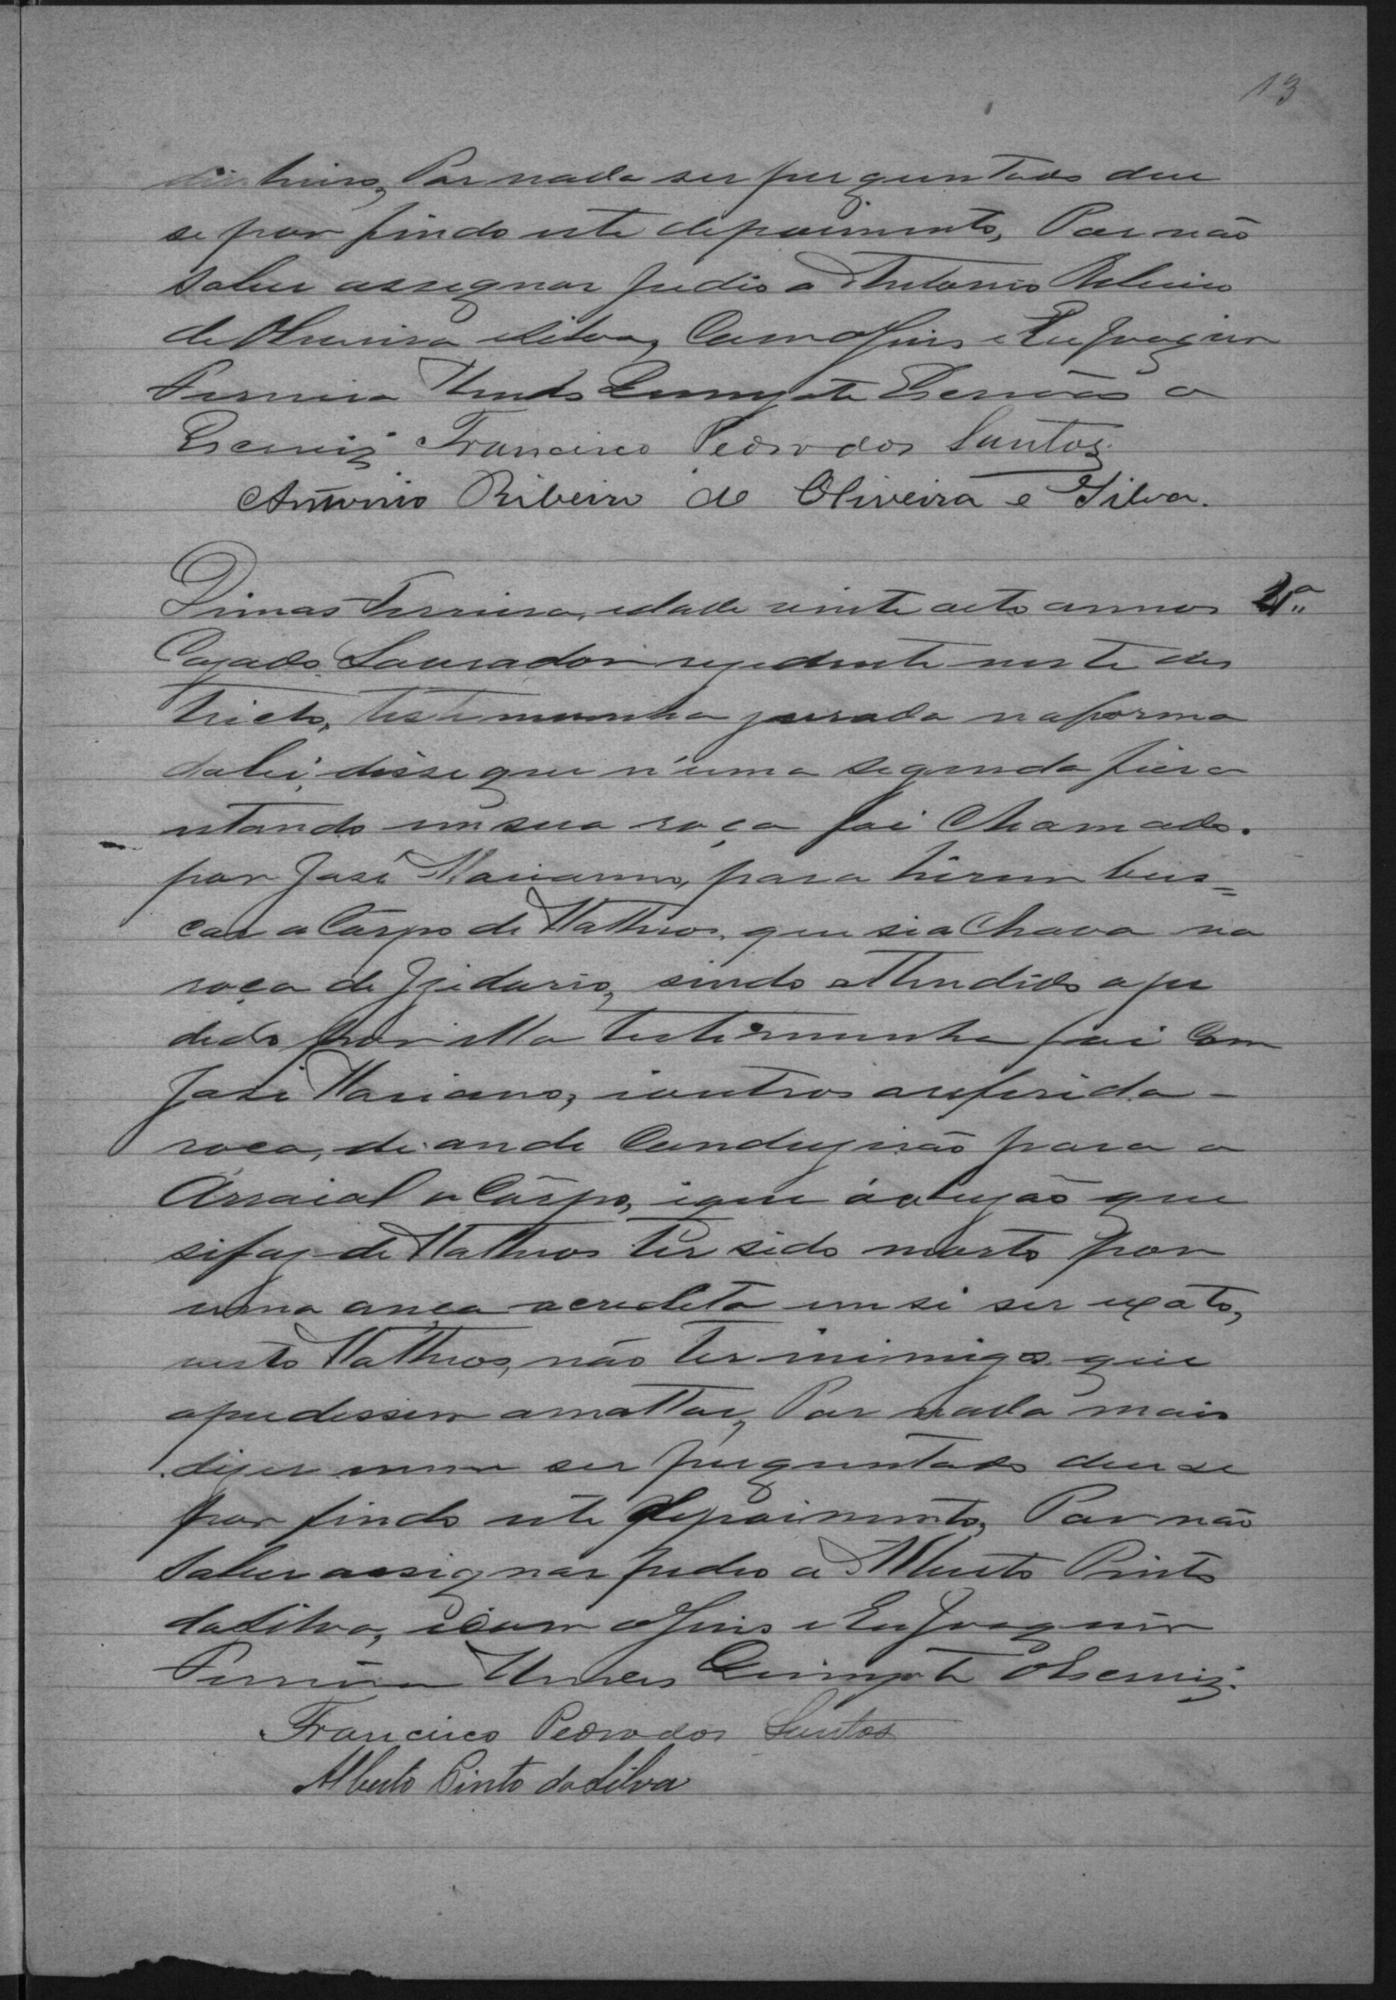 13
dinheiro, Por nada ser perguntado deu
se por findo este depoimento, Por não
saber assignar pedio a Antonio Ribeiro
de Oliveira eSilva, Com oJuis e Eu Joaquim
Ferreira Escrivão o
Escrivi Francisco Pedro dos Santos
Antonio Ribeiro de Oliveira e Silva.
Dimas Ferreira, idade vinte oito annos 4ª
Cazado Lavrador rezidente neste dis
tricto, testimunha jurada naforma
dalei, disse que n'uma segunda feira
estando emsua roça foi Chamado
por José Marianno, para hirem bus=
car o Corpo de Matheos, que sia Chava na
roça de Izidorio, sendo attendido ope
dido por ella testimunha foi Com
José Mariano, ioutros areferida -
roça, de onde Conduzirão para o
Arraial o Corpo, ique que
sifaz de Matheos ter sido morto por
uma onça acredita emsi ser exato,
visto Matheos, não ter inimigos que
opudessem amattar, Por nada mais
dizer nem ser perguntado deuse
por findo este depoimento, Por não
saber assignar pedio a Alberto Pinto
daSilva, icom oJuis e Eu Joaquim
Ferreira oEscrivi.
Francisco Pedro dos Santos
Alberto Pinto daSilva